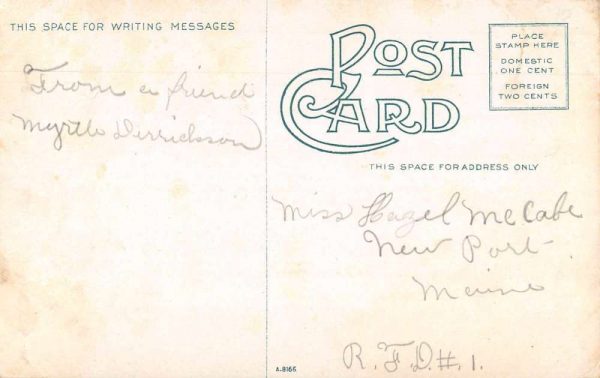 THIS SPACE FOR WRITING MESSAGES
From a friend
Myrtle Derrickson
POST
CARD
PLACE
STAMP HERE
DOMESTIC
ONE CENT
FOREIGN
TWO CENTS
THIS SPACE FOR ADDRESS ONLY
Miss Hazel McCabe
New Port
Maine
R.F.D.#.1.
A-8166